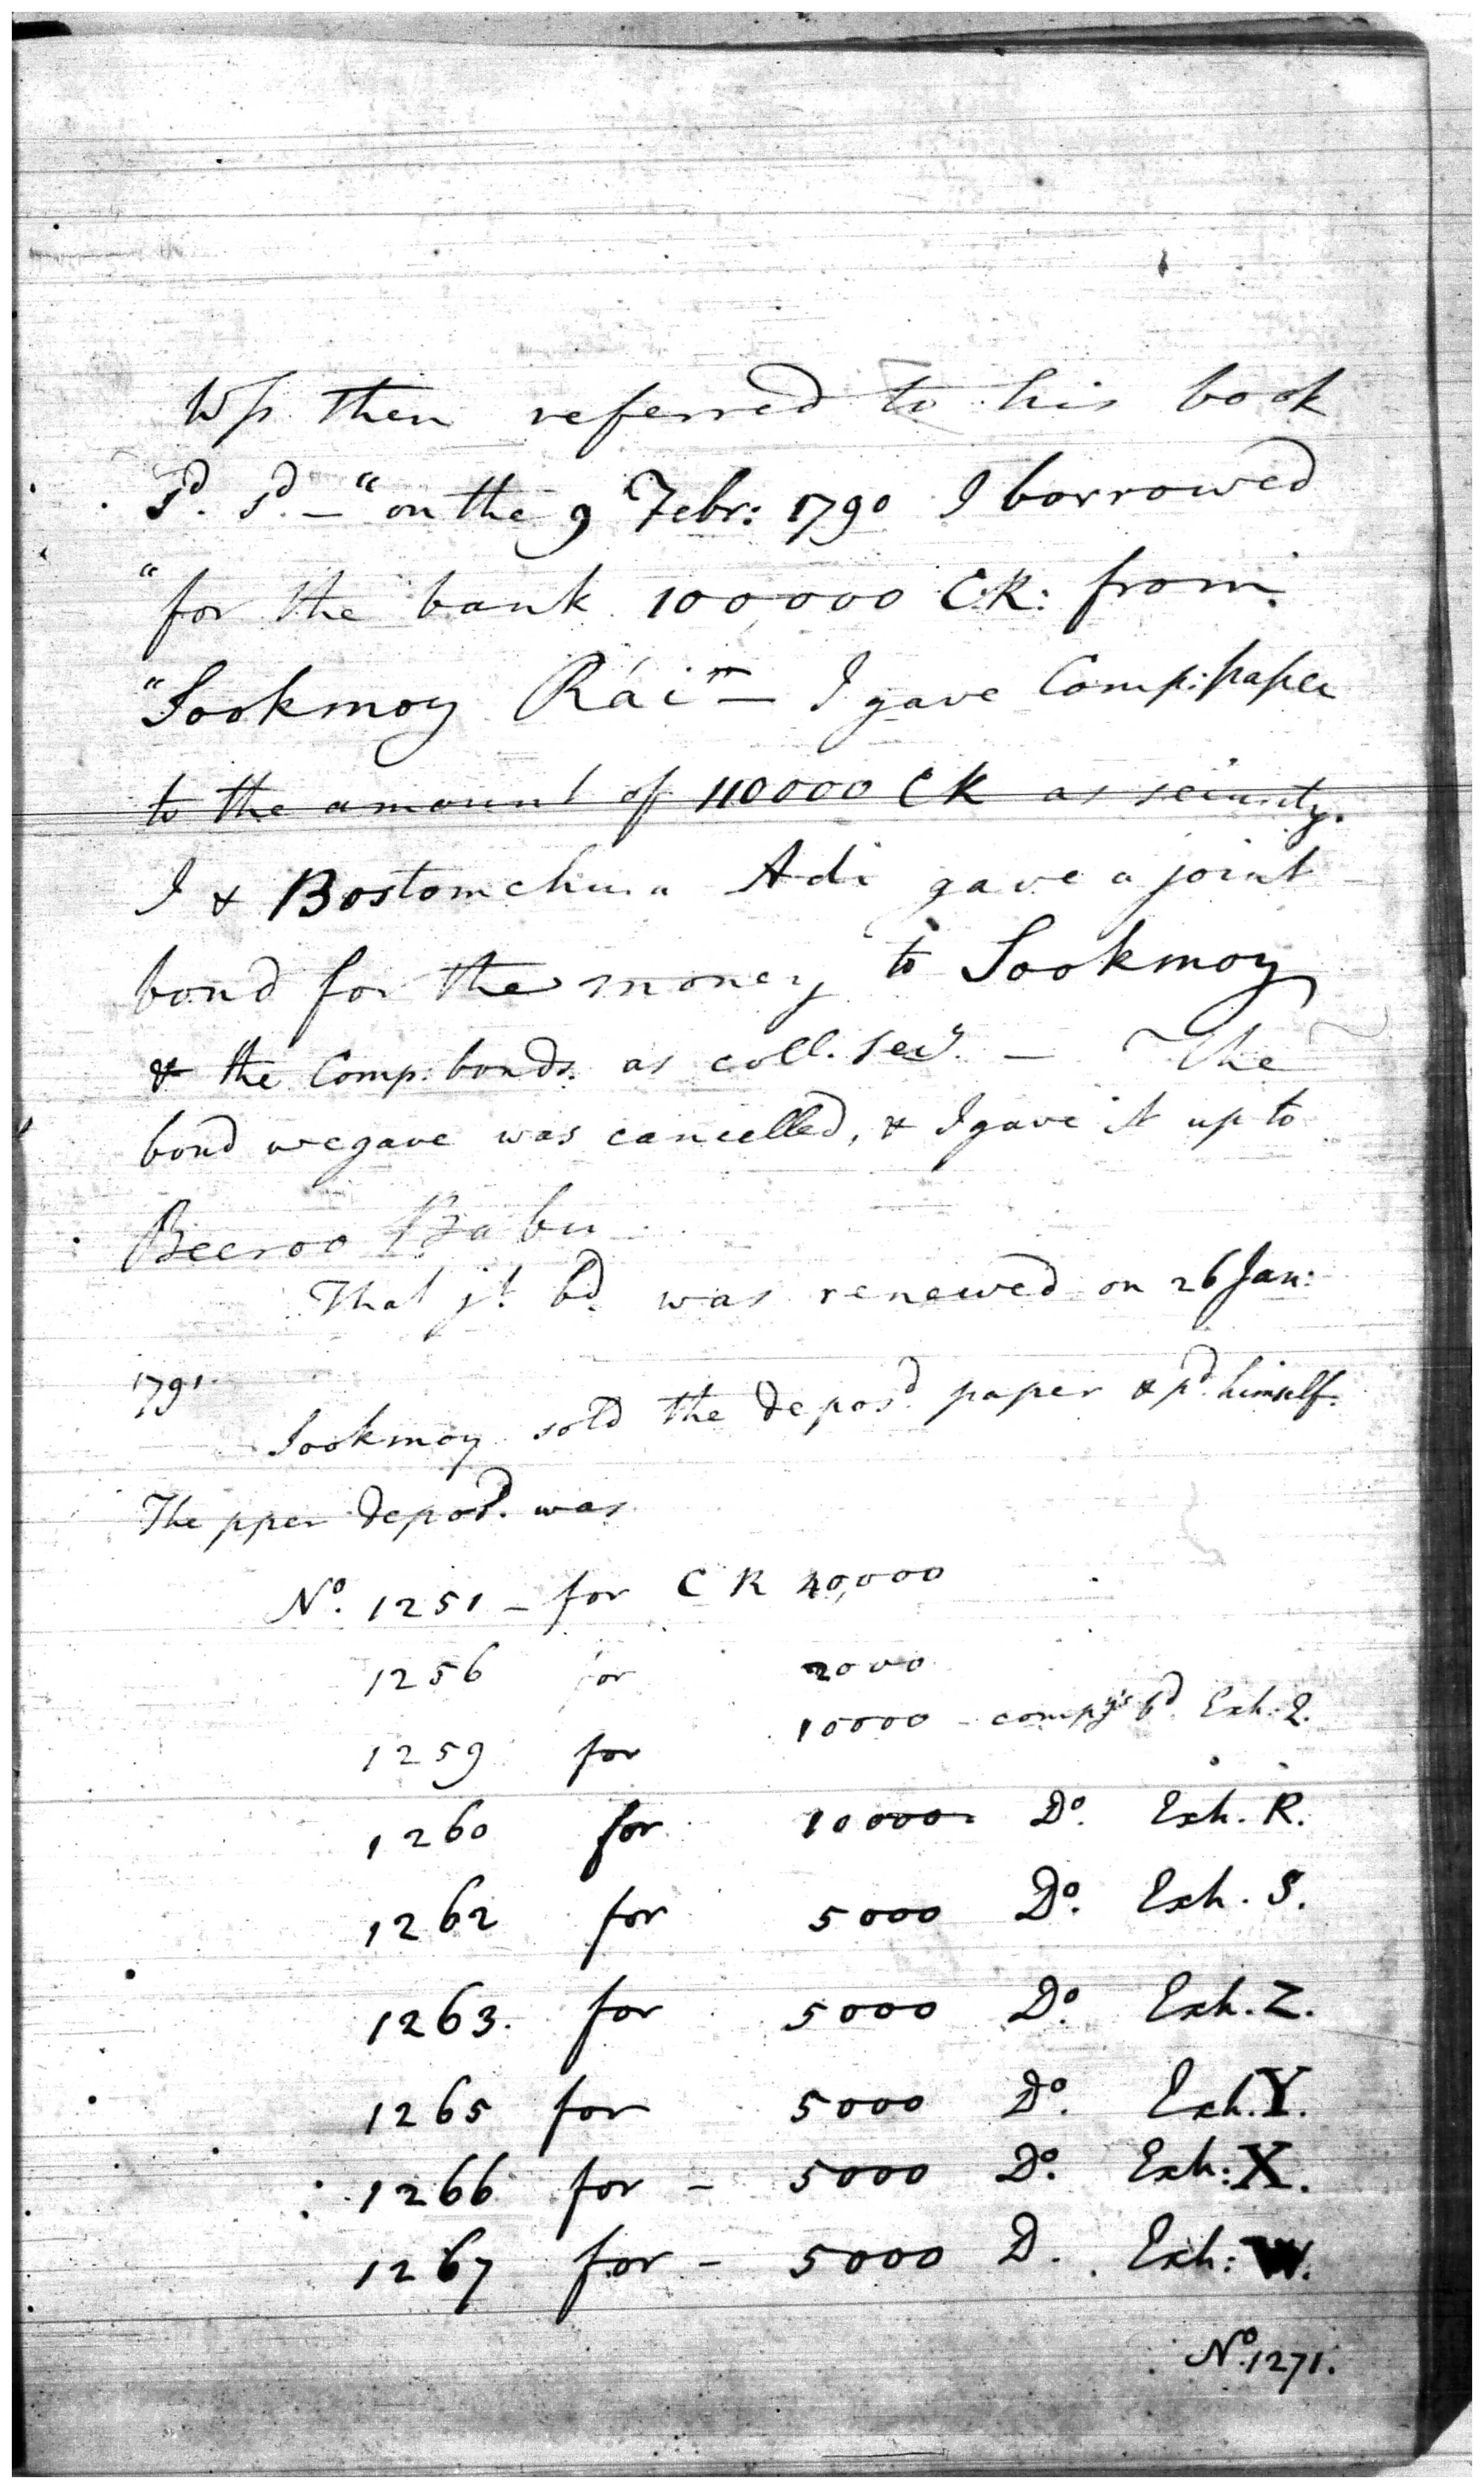 Ws. then referred to his book
Sd. Sd. — "on the 9 Febr: 1790 I borrowed
"for the bank 100,000 CR: from
"Sookmoy Rái" — I gave Comp: paper
to the amount of 110000 CR as security.
I & Bostomchurn Adi gave a joint
bond for the money to Sookmoy
& the Comp: bonds. as coll. secy. — The
bond we gave was cancelled, & I gave it up to
Beeroo Babu
That jt. bd. was renewed on 26 Jan:
1791.
Sookmoy sold the deposd. paper & pd. himself.
The pper deposd. was
No. 1251 – for CR 40,000
1256 for 2000
1259 for 10000 – compy's bd. Exh: Q.
1260 for 10000. Do. Exh. R.
1262 for 5000 Do. Exh. S.
1263. for 5000 Do. Exh. Z.
1265 for 5000 Do. Exh. Y.
1266 for – 5000 Do. Exh: X.
1267 for – 5000 D. Exh: W.
No. 1271.